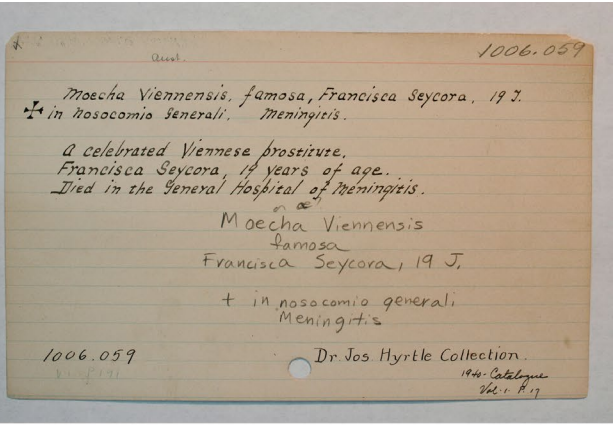 Aust.
1006.059
Moecha Viennensis, famosa, Francisca Seycora, 19 J.
✠ in nosocomio Generali. Meningitis.
A celebrated Viennese prostitute,
Francisca Seycora, 19 years of age.
Died in the General Hospital of Meningitis.
or œ
Moecha Viennensis
famosa
Francisca Seycora, 19 J.
+ in nosocomio generali
Meningitis
1006.059
Dr. Jos Hyrtle Collection.
1940-Catalogue
Vol.-1- P. 17